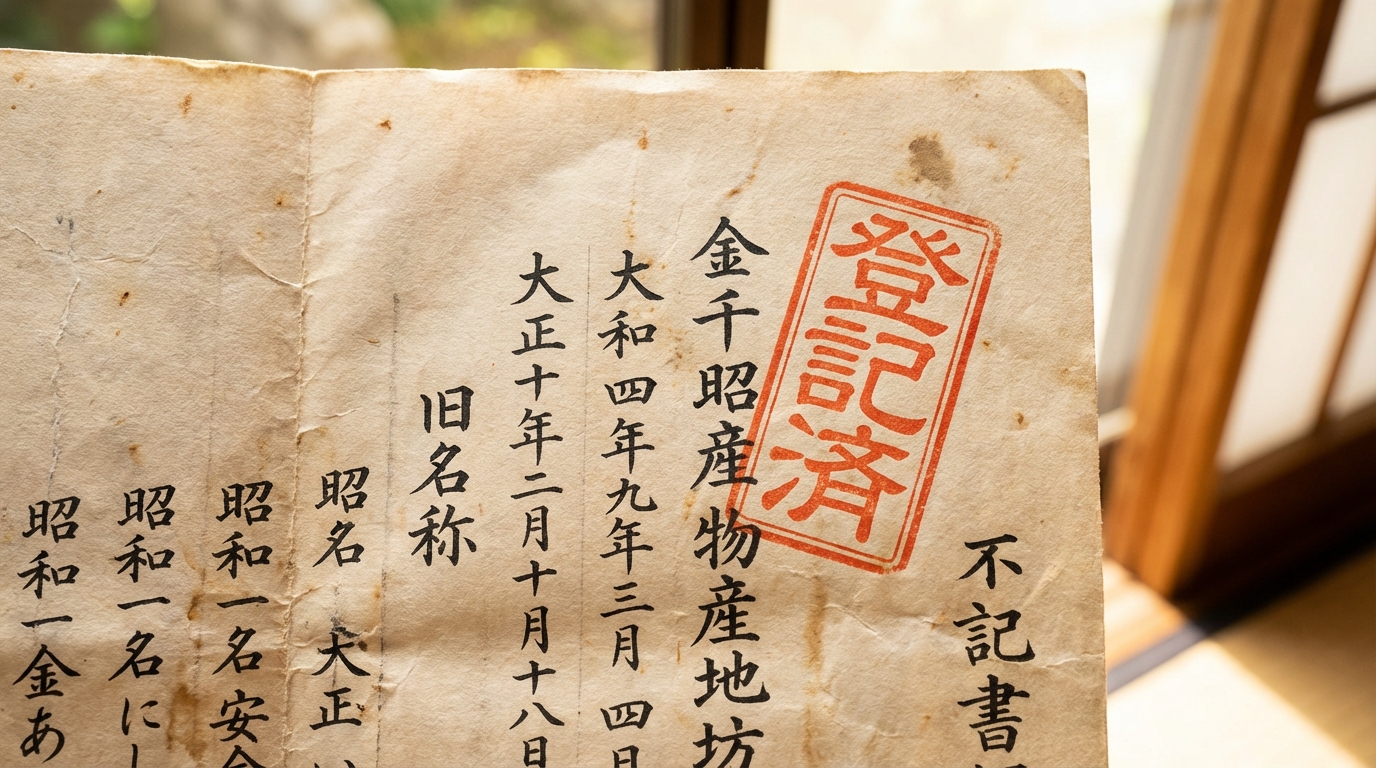 登記済
不記書
金千昭産物産地坊
大和四年九年三月四日
大正十年二月十月十八日
旧名称
昭名大正
昭和一名安
昭和一名に
昭和一金あ